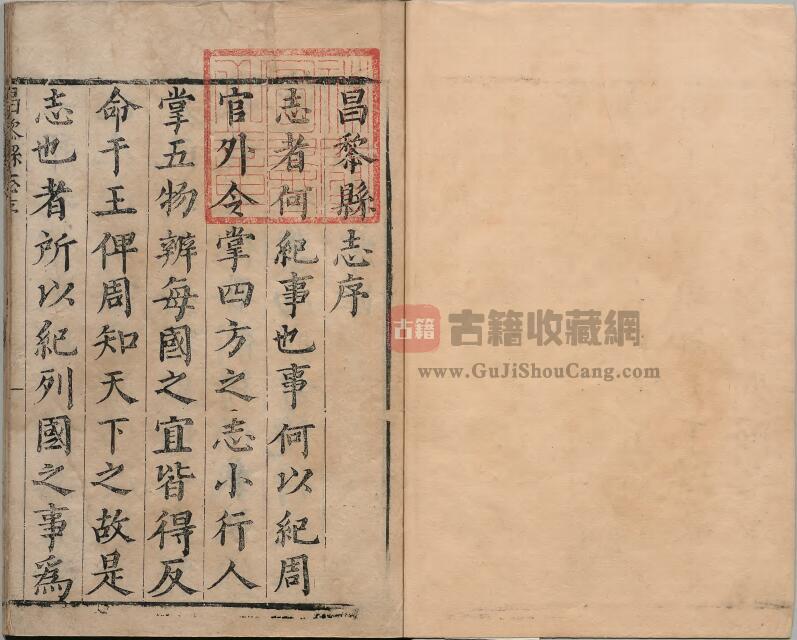 昌黎縣志序
志者何紀事也事何以紀周
官外令掌四方之志小行人
掌五物辨每國之宜皆得反
命于王俾周知天下之故是
志也者所以紀列國之事為
古籍
古籍收藏網
www.GuJiShouCang.com